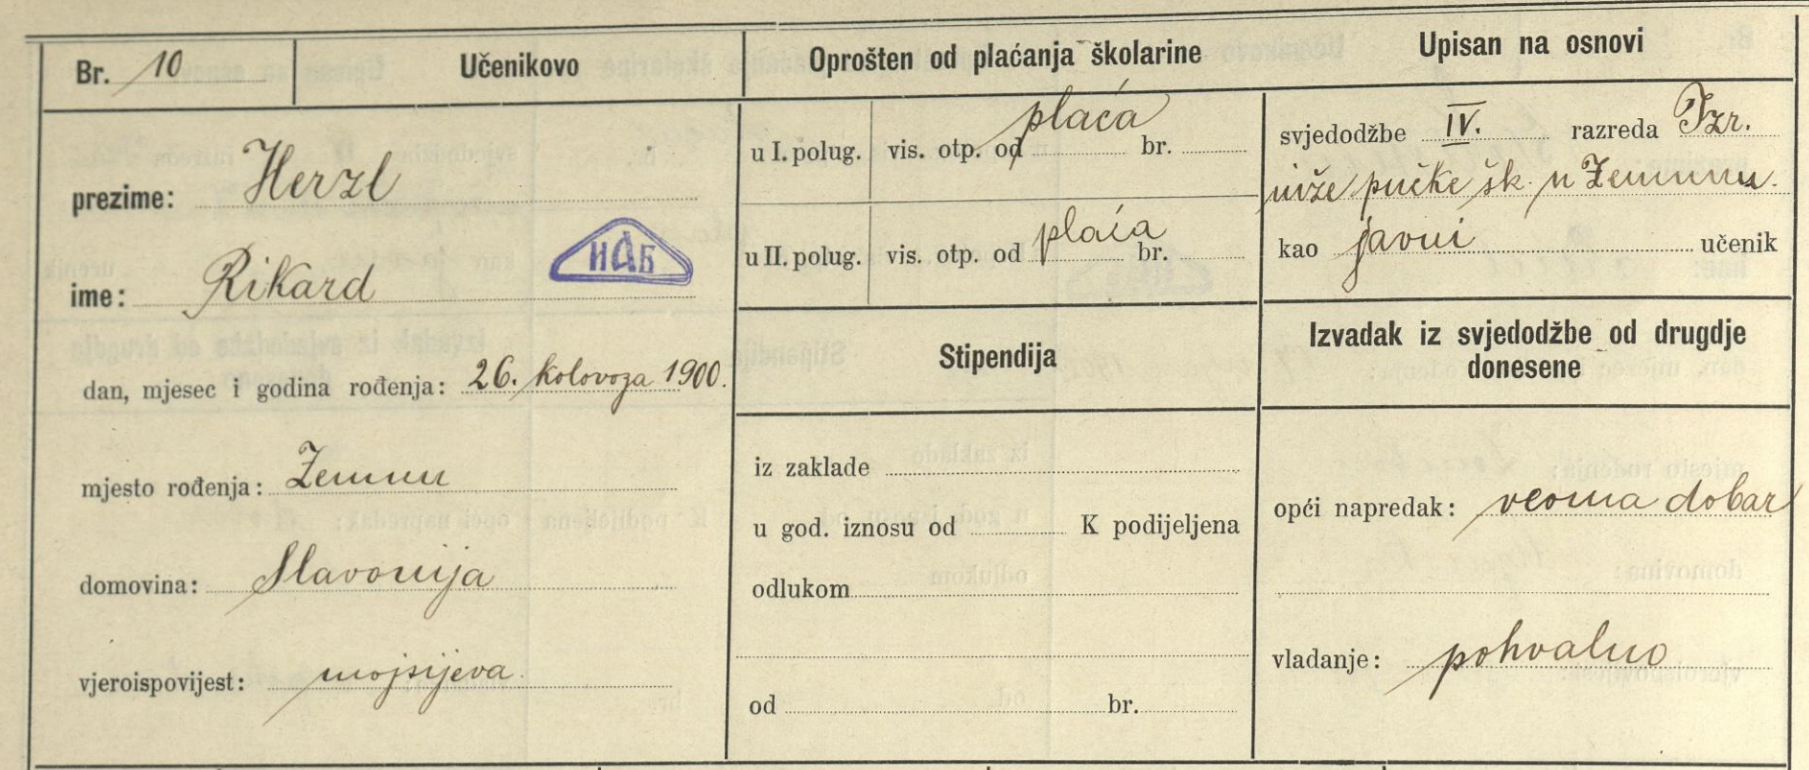 Br. 10
Učenikovo
prezime: Herzl
ime: Rikard
ИАБ
dan, mjesec i godina rođenja: 26. kolovoza 1900.
mjesto rođenja: Zemun
domovina: Slavonija
vjeroispovijest: mojsijeva
Oprošten od plaćanja školarine
u I. polug. vis. otp. od plaća br.
u II. polug. vis. otp. od plaća br.
Stipendija
iz zaklade
u god. iznosu od K podijeljena
odlukom
od br.
Upisan na osnovi
svjedodžbe IV. razreda Izr.
niže pučke šk. u Zemunu.
kao javni učenik
Izvadak iz svjedodžbe od drugdje
donesene
opći napredak: veoma dobar
vladanje: pohvalno